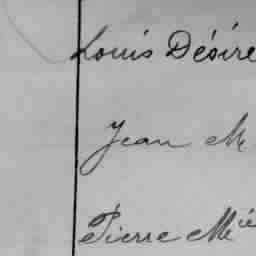 Louis Désiré
Jean M
Pierre Mie